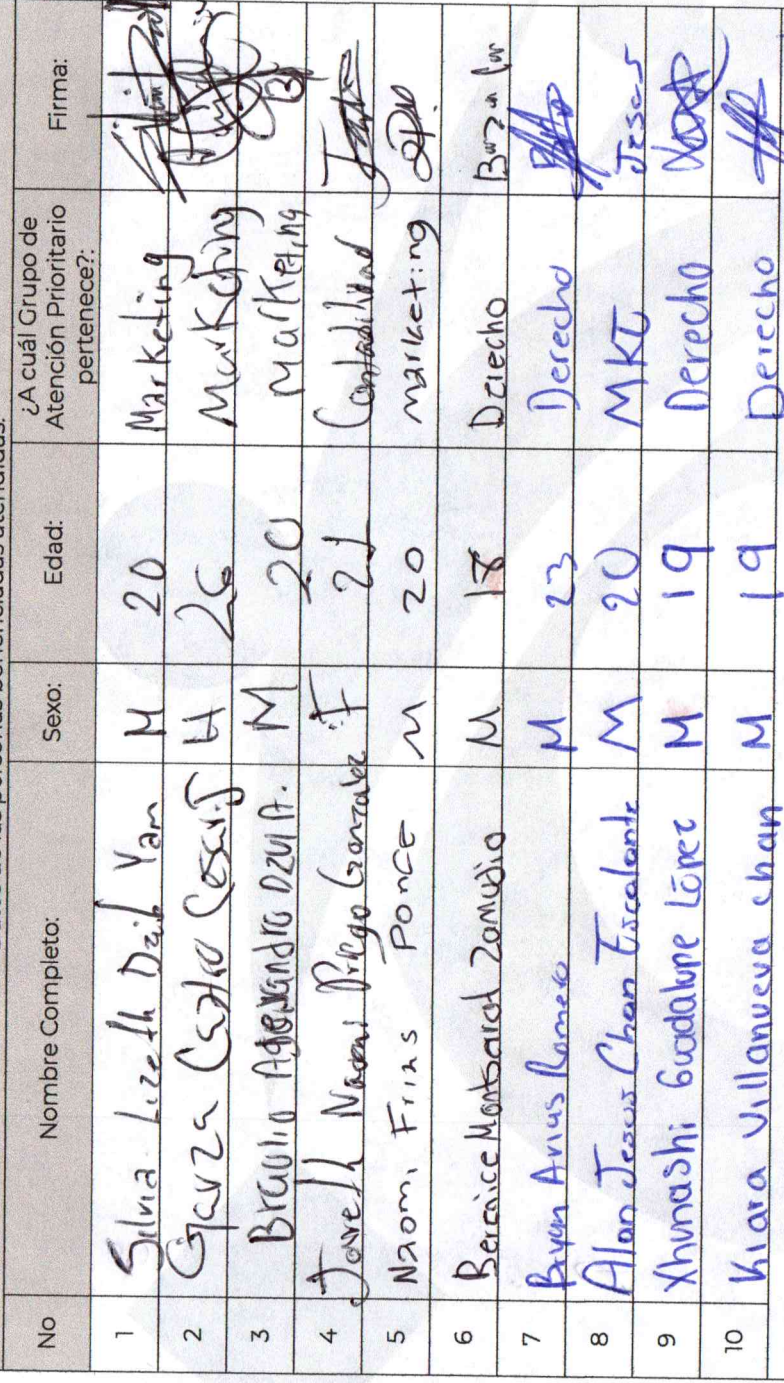 No Nombre Completo: Sexo: Edad: ¿A cuál Grupo de Atención Prioritario pertenece?: Firma:
1 Silvia Lizeth Dzib Yam M 20 Marketing
2 Garza Castro Cesar J H 26 Marketing
3 Braulio Alejandro Dzul A. M 20 Marketing
4 Jareth Naomi Priego Gonzalez F 21 Contabilidad
5 Naomi Frias Ponce M 20 marketing
6 Berenice Montserrat Zamudio M 18 Derecho
7 Bryan Arias Romero M 23 Derecho
8 Alan Jesus Chan Escalante M 20 MKT Jesus
9 Xhunashi Guadalupe López M 19 Derecho
10 Kiara Villanueva chan M 19 Derecho